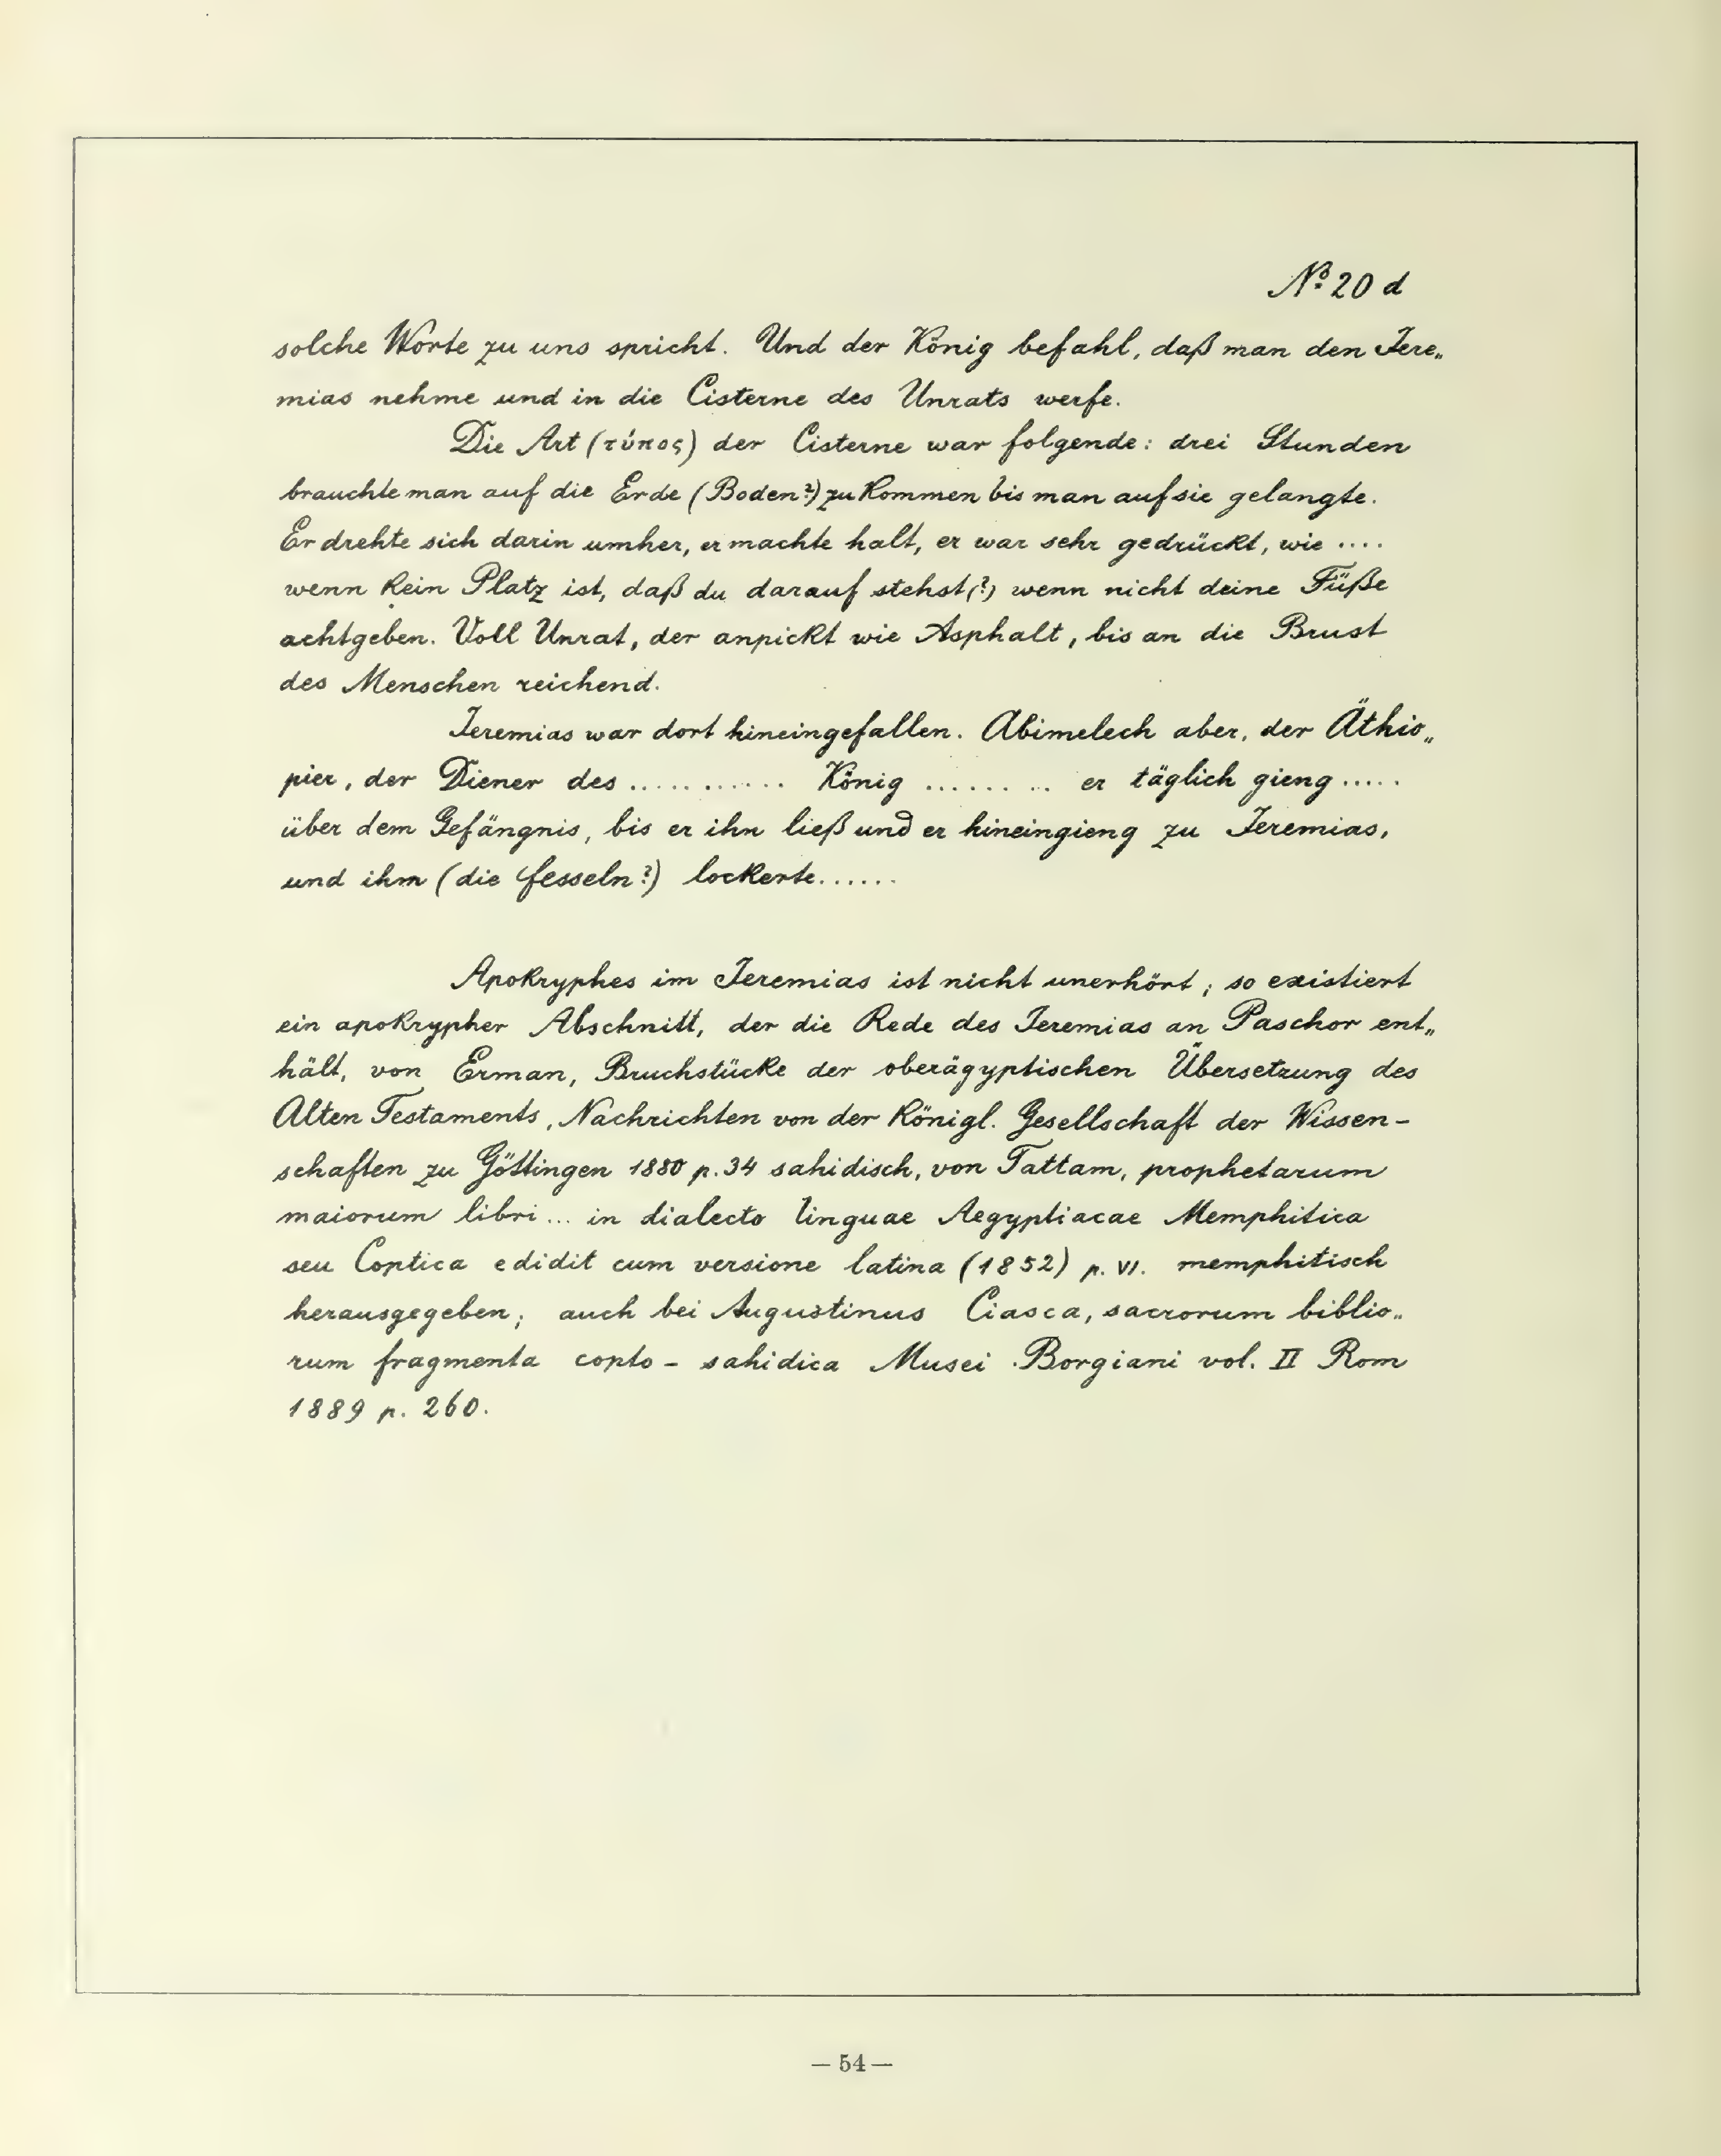 № 20 d
solche Worte zu uns spricht. Und der König befahl, daß man den Jere„
mias nehme und in die Cisterne des Unrats werfe.
Die Art (τύπος) der Cisterne war folgende: drei Stunden
brauchte man auf die Erde (Boden?) zu kommen bis man auf sie gelangte.
Er drehte sich darin umher, er machte halt, er war sehr gedrückt, wie ....
wenn kein Platz ist, daß du darauf stehst(?) wenn nicht deine Füße
achtgeben. Voll Unrat, der anpickt wie Asphalt, bis an die Brust
des Menschen reichend.
Jeremias war dort hineingefallen. Abimelech aber, der Äthio„
pier, der Diener des ........... König ....... .. er täglich gieng .....
über dem Gefängnis, bis er ihn ließ und er hineingieng zu Jeremias,
und ihm (die Fesseln?) lockerte......
Apokryphes im Jeremias ist nicht unerhört; so existiert
ein apokrypher Abschnitt, der die Rede des Jeremias an Paschor ent„
hält, von Erman, Bruchstücke der oberägyptischen Übersetzung des
Alten Testaments, Nachrichten von der Königl. Gesellschaft der Wissen-
schaften zu Göttingen 1880 p. 34 sahidisch, von Tattam, prophetarum
maiorum libri... in dialecto linguae Aegyptiacae Memphitica
seu Coptica edidit cum versione latina (1852) p. VI. memphitisch
herausgegeben; auch bei Augustinus Ciasca, sacrorum biblio„
rum fragmenta copto - sahidica Musei Borgiani vol. II Rom
1889 p. 260.
— 54 —